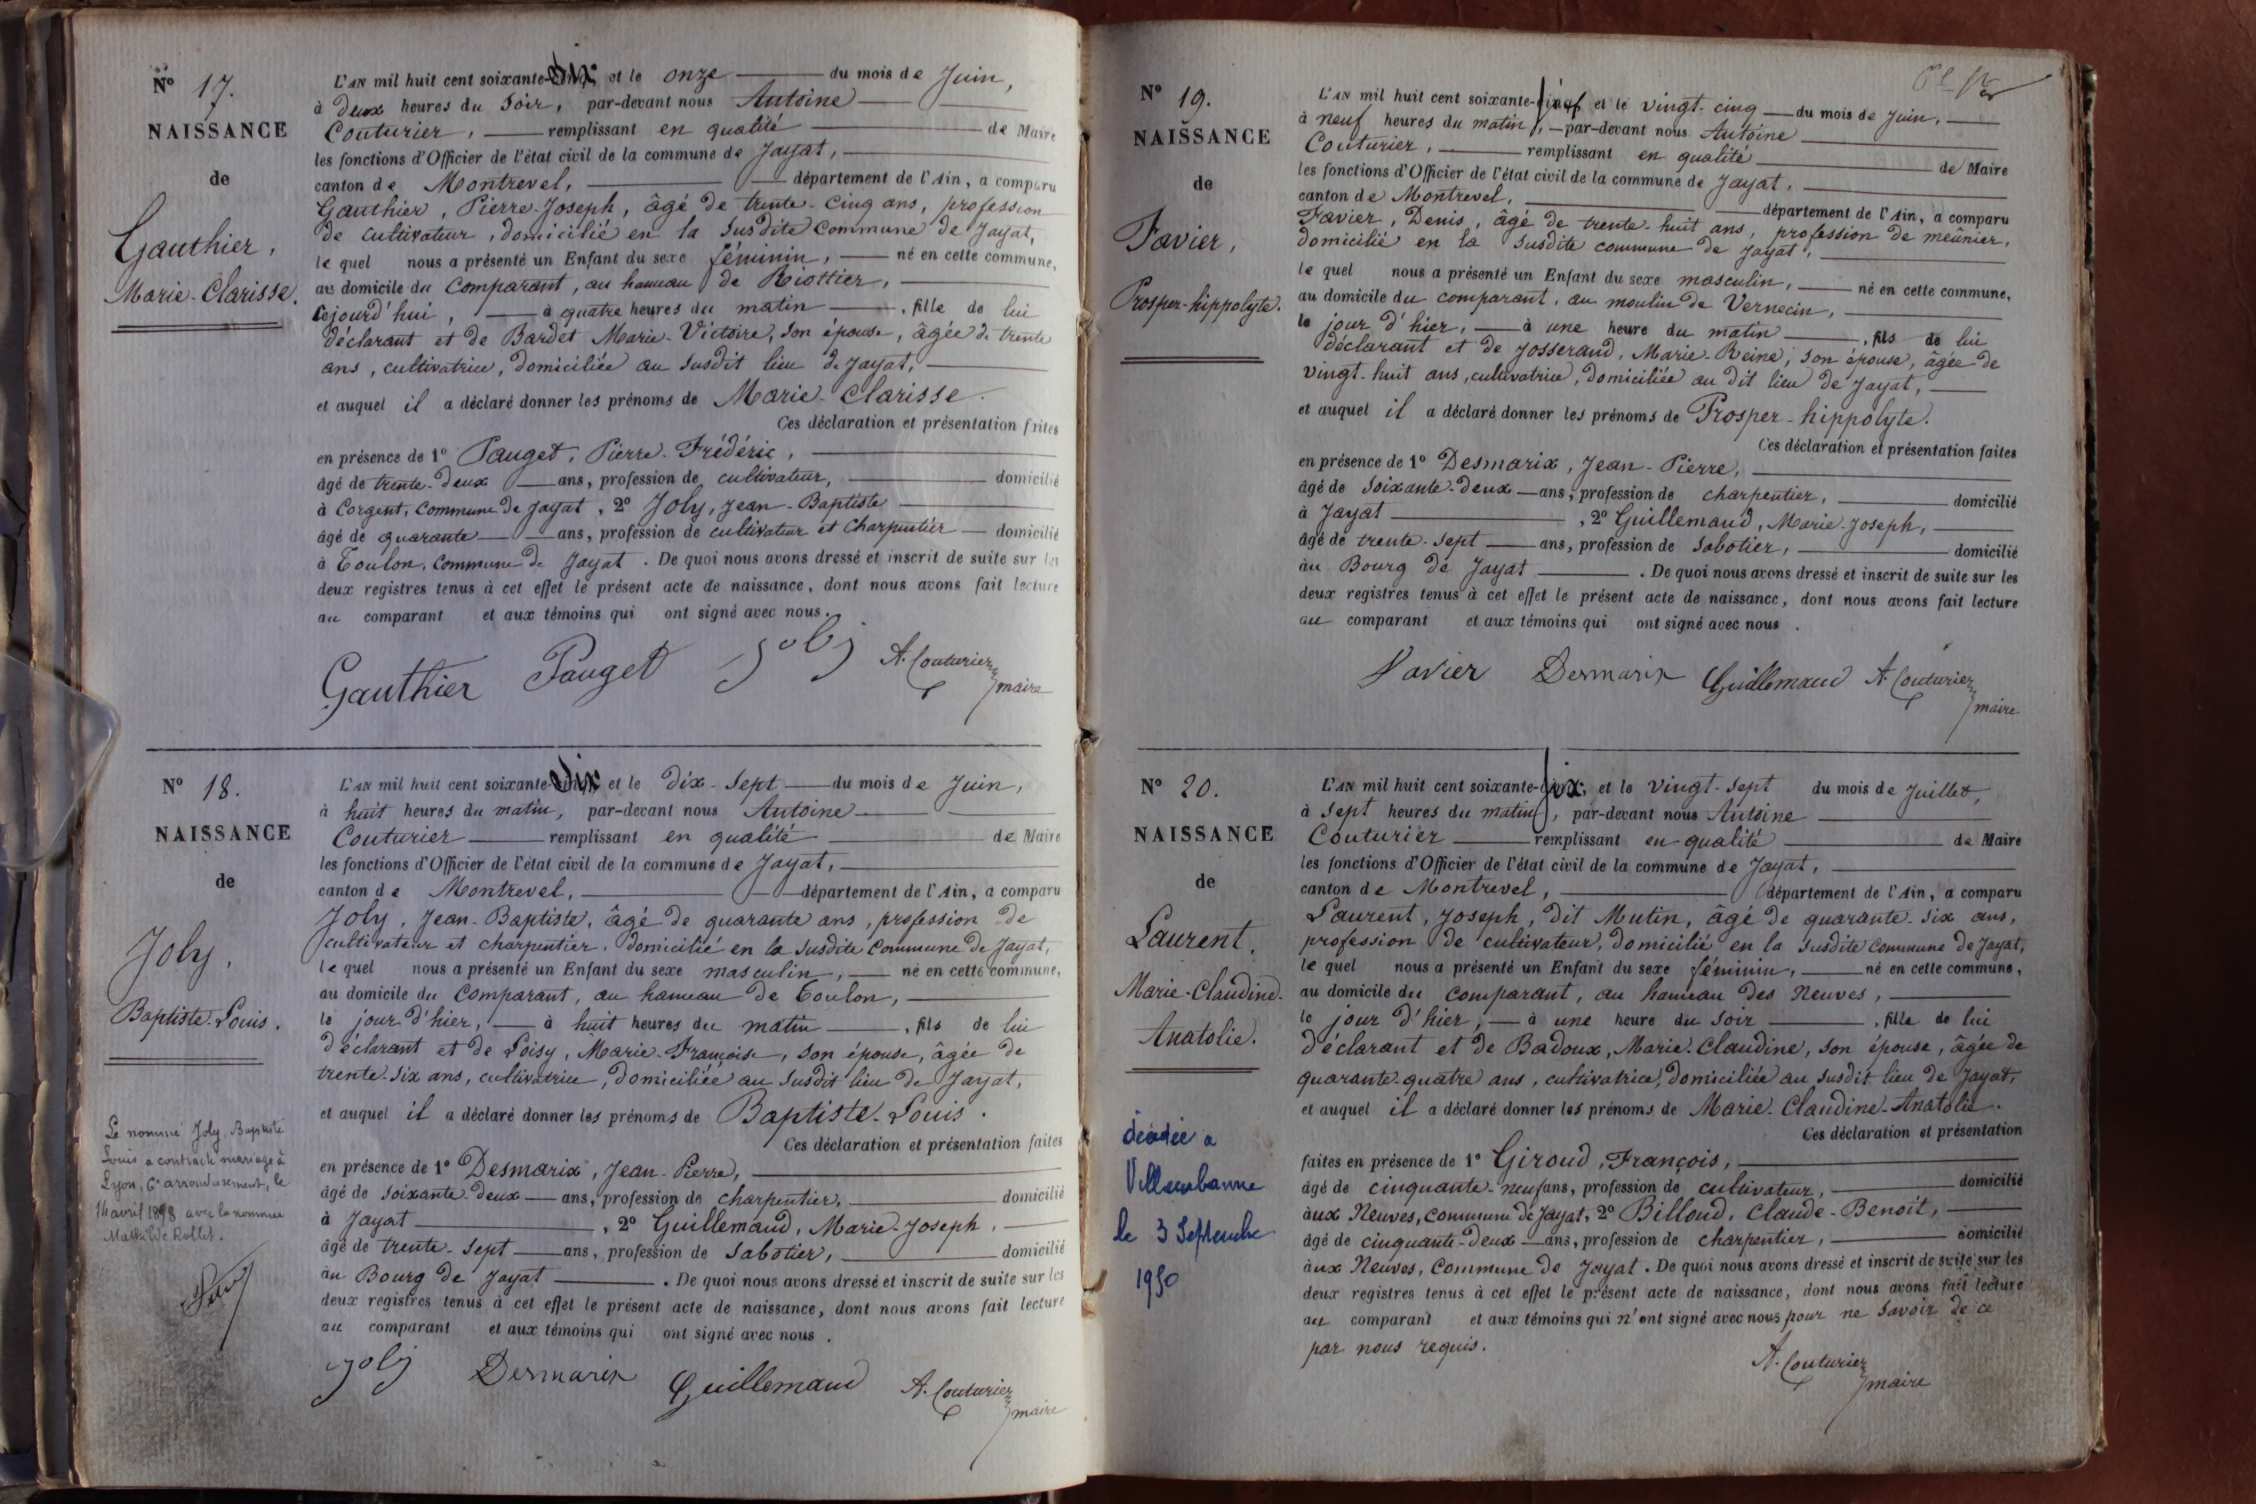 N° 17.
NAISSANCE
de
Gauthier,
Marie-Clarisse.
L'AN mil huit cent soixante-dix et le onze du mois de Juin,
à deux heures du soir, par-devant nous Antoine
Couturier, remplissant en qualité de Maire
les fonctions d'Officier de l'état civil de la commune de Jayat,
canton de Montrevel, département de l'Ain, a comparu
Gauthier, Pierre-Joseph, âgé de trente-cinq ans, profession
de cultivateur, domicilié en la susdite commune de Jayat,
lequel nous a présenté un Enfant du sexe féminin, né en cette commune,
au domicile du comparant, au hameau de Riottier,
cejourd'hui, à quatre heures du matin, fille de lui
déclarant et de Bardet Marie-Victoire, son épouse, âgée de trente
ans, cultivatrice, domiciliée au susdit lieu de Jayat,
et auquel il a déclaré donner les prénoms de Marie-Clarisse.
Ces déclaration et présentation faites
en présence de 1° Pauget, Pierre-Frédéric,
âgé de trente-deux ans, profession de cultivateur, domicilié
à Corgent, commune de Jayat, 2° Joly, Jean-Baptiste
âgé de quarante ans, profession de cultivateur et charpentier domicilié
à Toulon, commune de Jayat. De quoi nous avons dressé et inscrit de suite sur les
deux registres tenus à cet effet le présent acte de naissance, dont nous avons fait lecture
au comparant et aux témoins qui ont signé avec nous.
Gauthier Pauget Joly A. Couturier
maire
N° 18.
NAISSANCE
de
Joly,
Baptiste-Louis.
Le nommé Joly Baptiste
Louis a contracté mariage à
Lyon, 6e arrondissement, le
14 avril 1898 avec la nommée
Mathilde Rollet.
L'AN mil huit cent soixante-dix et le dix-sept du mois de Juin,
à huit heures du matin, par-devant nous Antoine
Couturier remplissant en qualité de Maire
les fonctions d'Officier de l'état civil de la commune de Jayat,
canton de Montrevel, département de l'Ain, a comparu
Joly, Jean-Baptiste, âgé de quarante ans, profession de
cultivateur et charpentier, domicilié en la susdite commune de Jayat,
lequel nous a présenté un Enfant du sexe masculin, né en cette commune,
au domicile du comparant, au hameau de Toulon,
le jour d'hier, à huit heures du matin, fils de lui
déclarant et de Loisy, Marie-Françoise, son épouse, âgée de
trente-six ans, cultivatrice, domiciliée au susdit lieu de Jayat,
et auquel il a déclaré donner les prénoms de Baptiste-Louis.
Ces déclaration et présentation faites
en présence de 1° Desmarix, Jean-Pierre,
âgé de soixante-deux ans, profession de charpentier, domicilié
à Jayat, 2° Guillemaud, Marie-Joseph,
âgé de trente-sept ans, profession de sabotier, domicilié
au Bourg de Jayat. De quoi nous avons dressé et inscrit de suite sur les
deux registres tenus à cet effet le présent acte de naissance, dont nous avons fait lecture
au comparant et aux témoins qui ont signé avec nous.
Joly Desmarix Guillemaud A. Couturier
maire
N° 19.
NAISSANCE
de
Favier,
Prosper-hippolyte.
L'AN mil huit cent soixante-dix et le vingt-cinq du mois de Juin,
à neuf heures du matin, par-devant nous Antoine
Couturier, remplissant en qualité de Maire
les fonctions d'Officier de l'état civil de la commune de Jayat,
canton de Montrevel, département de l'Ain, a comparu
Favier, Denis, âgé de trente-huit ans, profession de meûnier,
domicilié en la susdite commune de Jayat,
lequel nous a présenté un Enfant du sexe masculin, né en cette commune,
au domicile du comparant, au moulin de Vernecin,
le jour d'hier, à une heure du matin, fils de lui
déclarant et de Josserand, Marie-Reine, son épouse, âgée de
vingt-huit ans, cultivatrice, domiciliée au dit lieu de Jayat,
et auquel il a déclaré donner les prénoms de Prosper-hippolyte.
Ces déclaration et présentation faites
en présence de 1° Desmarix, Jean-Pierre,
âgé de soixante-deux ans, profession de charpentier, domicilié
à Jayat, 2° Guillemaud, Marie-Joseph,
âgé de trente-sept ans, profession de sabotier, domicilié
au Bourg de Jayat. De quoi nous avons dressé et inscrit de suite sur les
deux registres tenus à cet effet le présent acte de naissance, dont nous avons fait lecture
au comparant et aux témoins qui ont signé avec nous.
Favier Desmarix Guillemaud A. Couturier
maire
N° 20.
NAISSANCE
de
Laurent,
Marie-Claudine-
Anatolie.
décédée à
Villeurbanne
le 3 Septembre
1950
L'AN mil huit cent soixante-dix, et le vingt-sept du mois de Juillet,
à sept heures du matin, par-devant nous Antoine
Couturier remplissant en qualité de Maire
les fonctions d'Officier de l'état civil de la commune de Jayat,
canton de Montrevel, département de l'Ain, a comparu
Laurent, Joseph, dit Mutin, âgé de quarante-six ans,
profession de cultivateur, domicilié en la susdite commune de Jayat,
lequel nous a présenté un Enfant du sexe féminin, né en cette commune,
au domicile du comparant, au hameau des Neuves,
le jour d'hier, à une heure du soir, fille de lui
déclarant et de Badoux, Marie-Claudine, son épouse, âgée de
quarante-quatre ans, cultivatrice, domiciliée au susdit lieu de Jayat,
et auquel il a déclaré donner les prénoms de Marie-Claudine-Anatolie.
Ces déclaration et présentation
faites en présence de 1° Giroud, François,
âgé de cinquante-neuf ans, profession de cultivateur, domicilié
aux Neuves, commune de Jayat, 2° Billoud, Claude-Benoit,
âgé de cinquante-deux ans, profession de charpentier, domicilié
aux Neuves, commune de Jayat. De quoi nous avons dressé et inscrit de suite sur les
deux registres tenus à cet effet le présent acte de naissance, dont nous avons fait lecture
au comparant et aux témoins qui n'ont signé avec nous pour ne savoir de ce
par nous requis.
A. Couturier
maire